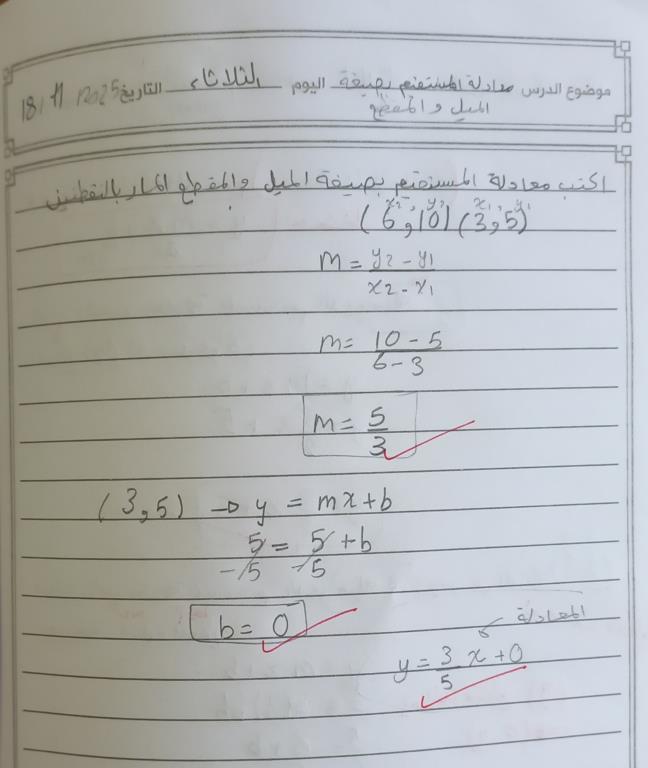 موضوع الدرس معادلة المستقيم بصيغة اليوم الثلاثاء التاريخ 18/11/2025
الميل والمقطع
اكتب معادلة المستقيم بصيغة الميل والمقطع المار بالنقطتين
x₂, y₂ x₁, y₁
(6,10) (3,5)
m = y₂ - y₁ / x₂ - x₁
m = 10 - 5 / 6 - 3
m = 5/3
(3,5) → y = mx+b
5 = 5 + b
-5 -5
b = 0
المعادلة
y = 3/5 x + 0